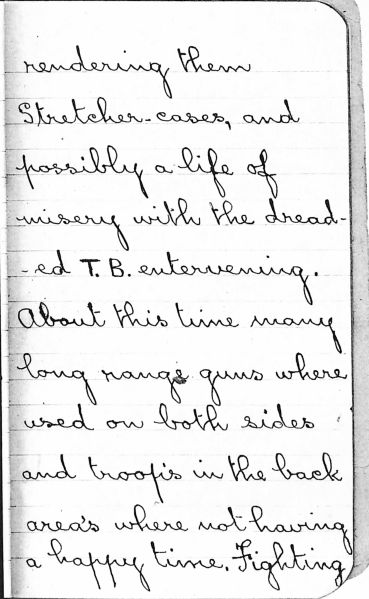 rendering them
Stretcher-cases, and
possibly a life of
misery with the dread-
-ed T.B. entervening.
About this time many
long range guns where
used on both sides
and troop's in the back
area's where not having
a happy time. Fighting